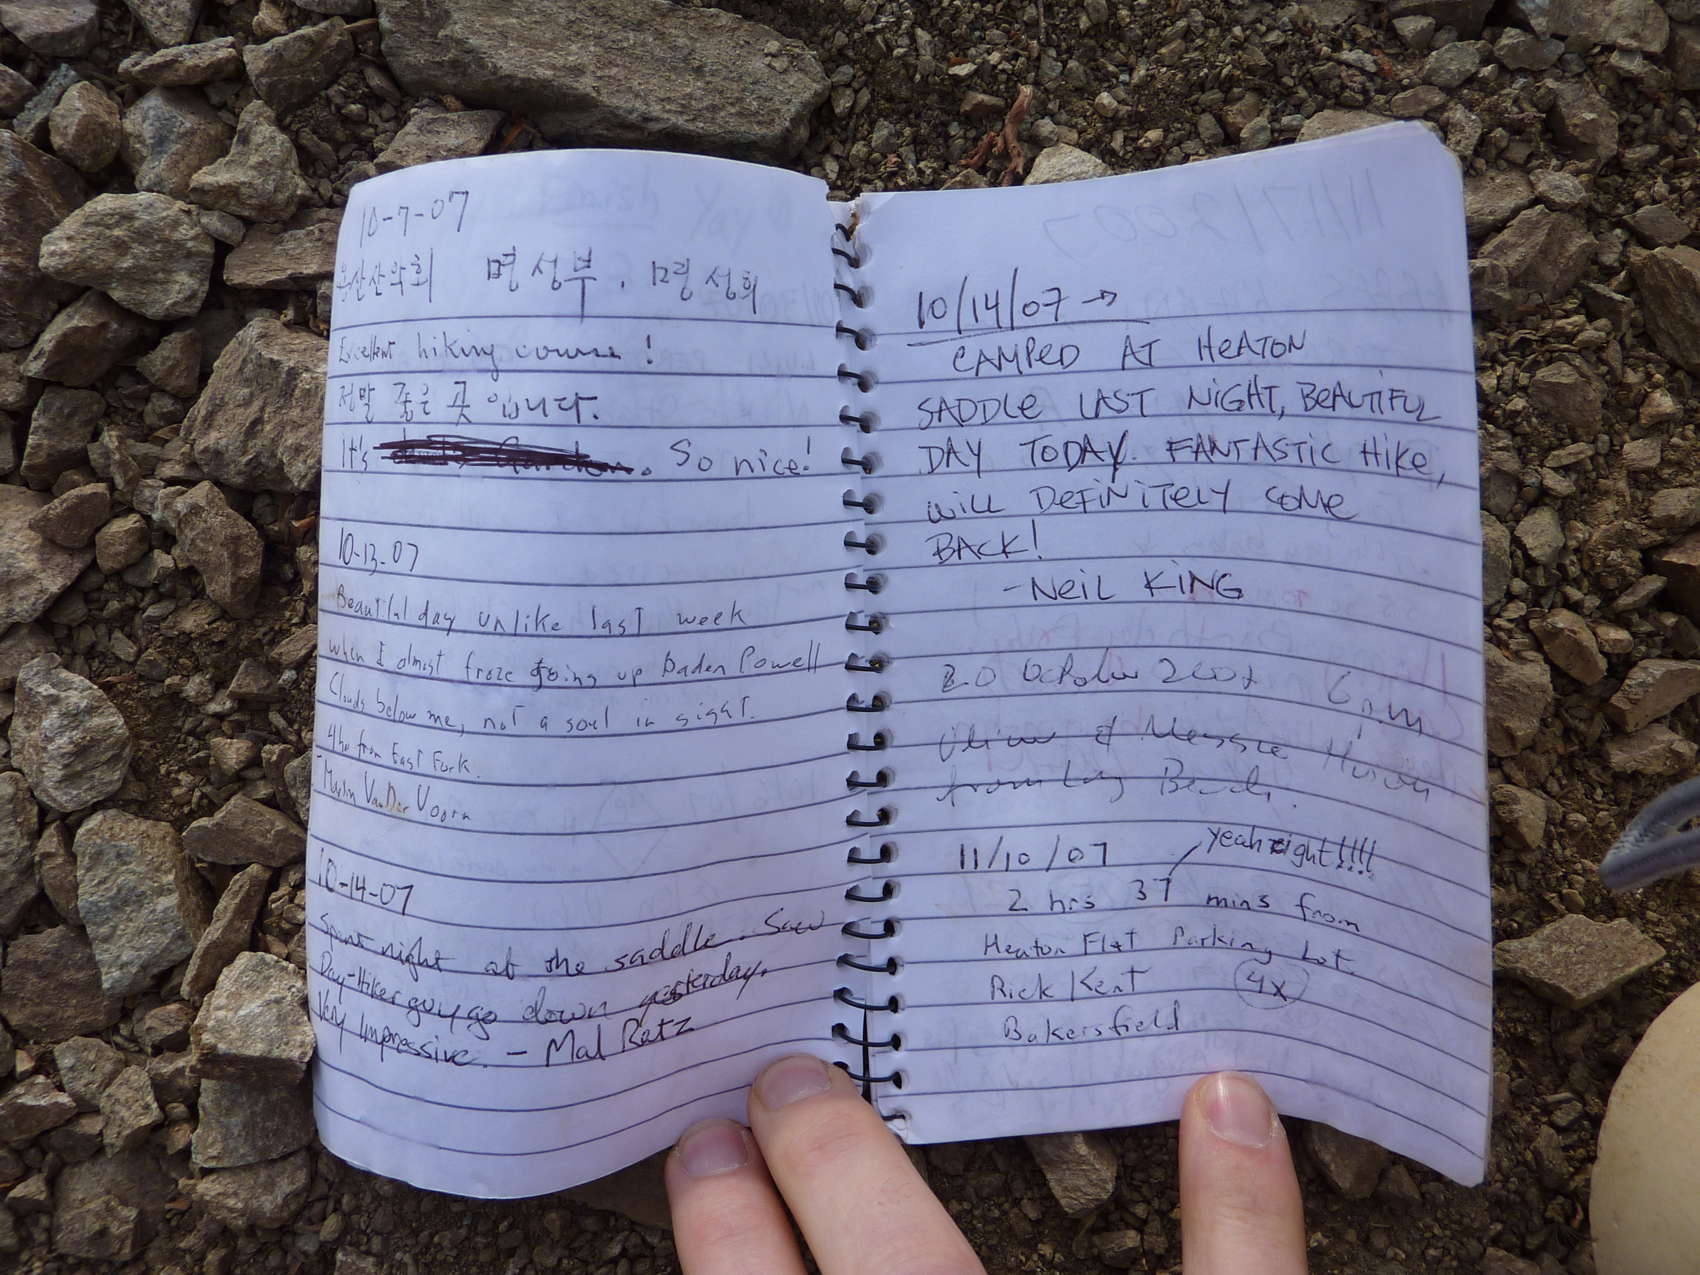 10-7-07
산악회 명성부, 명성회
Excellent hiking course!
정말 좋은 곳 입니다.
It's Garden. So nice!
10-13-07
Beautiful day unlike last week
when I almost froze going up Baden Powell
Clouds below me, not a soul in sight.
4 hr from East Fork.
-Martin VanDer Voorn
10-14-07
Spent night at the saddle. Saw
Day-Hiker guy go down yesterday.
Very Impressive. - Mal Ratz
10/14/07 →
CAMPED AT HEATON
SADDLE LAST NIGHT, BEAUTIFUL
DAY TODAY. FANTASTIC HIKE,
WILL DEFINITELY COME
BACK!
-NEIL KING
20 October 2007 6 p.m
from Long Beach.
11/10/07 yeah right!!!!
2 hrs 37 mins from
Heaton Flat Parking Lot.
Rick Kent 4x
Bakersfield